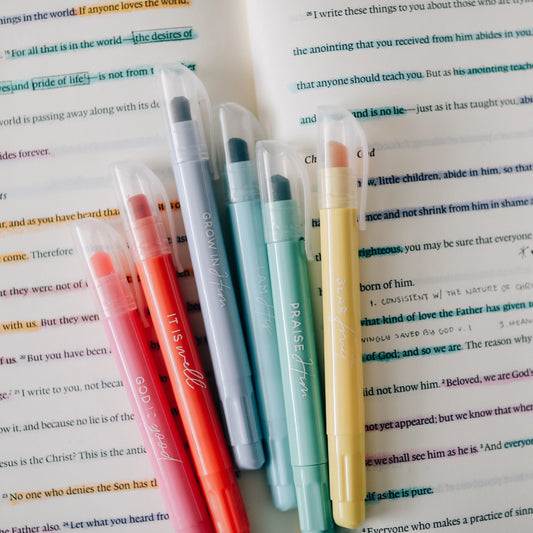 things in the world. If anyone loves the world,
16 For all that is in the world—the desires of
eyes and pride of life—is not from
world is passing away along with its
abides forever.
and as you have heard
come. Therefore
they were not of
with us. But they
of us. 20 But you have been
21 I write to you, not
know it, and because no lie is of the
Jesus is the Christ? This is the
23 No one who denies the Son has
the Father also. 24 Let what you heard from
26 I write these things to you about those who are trying
the anointing that you received from him abides in you,
that anyone should teach you. But as his anointing teaches
and is no lie—just as it has taught you, abide
Children of God
now, little children, abide in him, so that
confidence and not shrink from him in shame
righteous, you may be sure that everyone
born of him.
1. CONSISTENT W/ THE NATURE OF
what kind of love the Father has given to
SAVED BY GOD V. 1
of God; and so we are. The reason why
did not know him. 2 Beloved, we are God's
not yet appeared; but we know that when
we shall see him as he is. 3 And everyone
as he is pure.
4 Everyone who makes a practice of
GOD IS good
IT IS well
GROW IN Him
I AM His
PRAISE Him
BEAR fruit